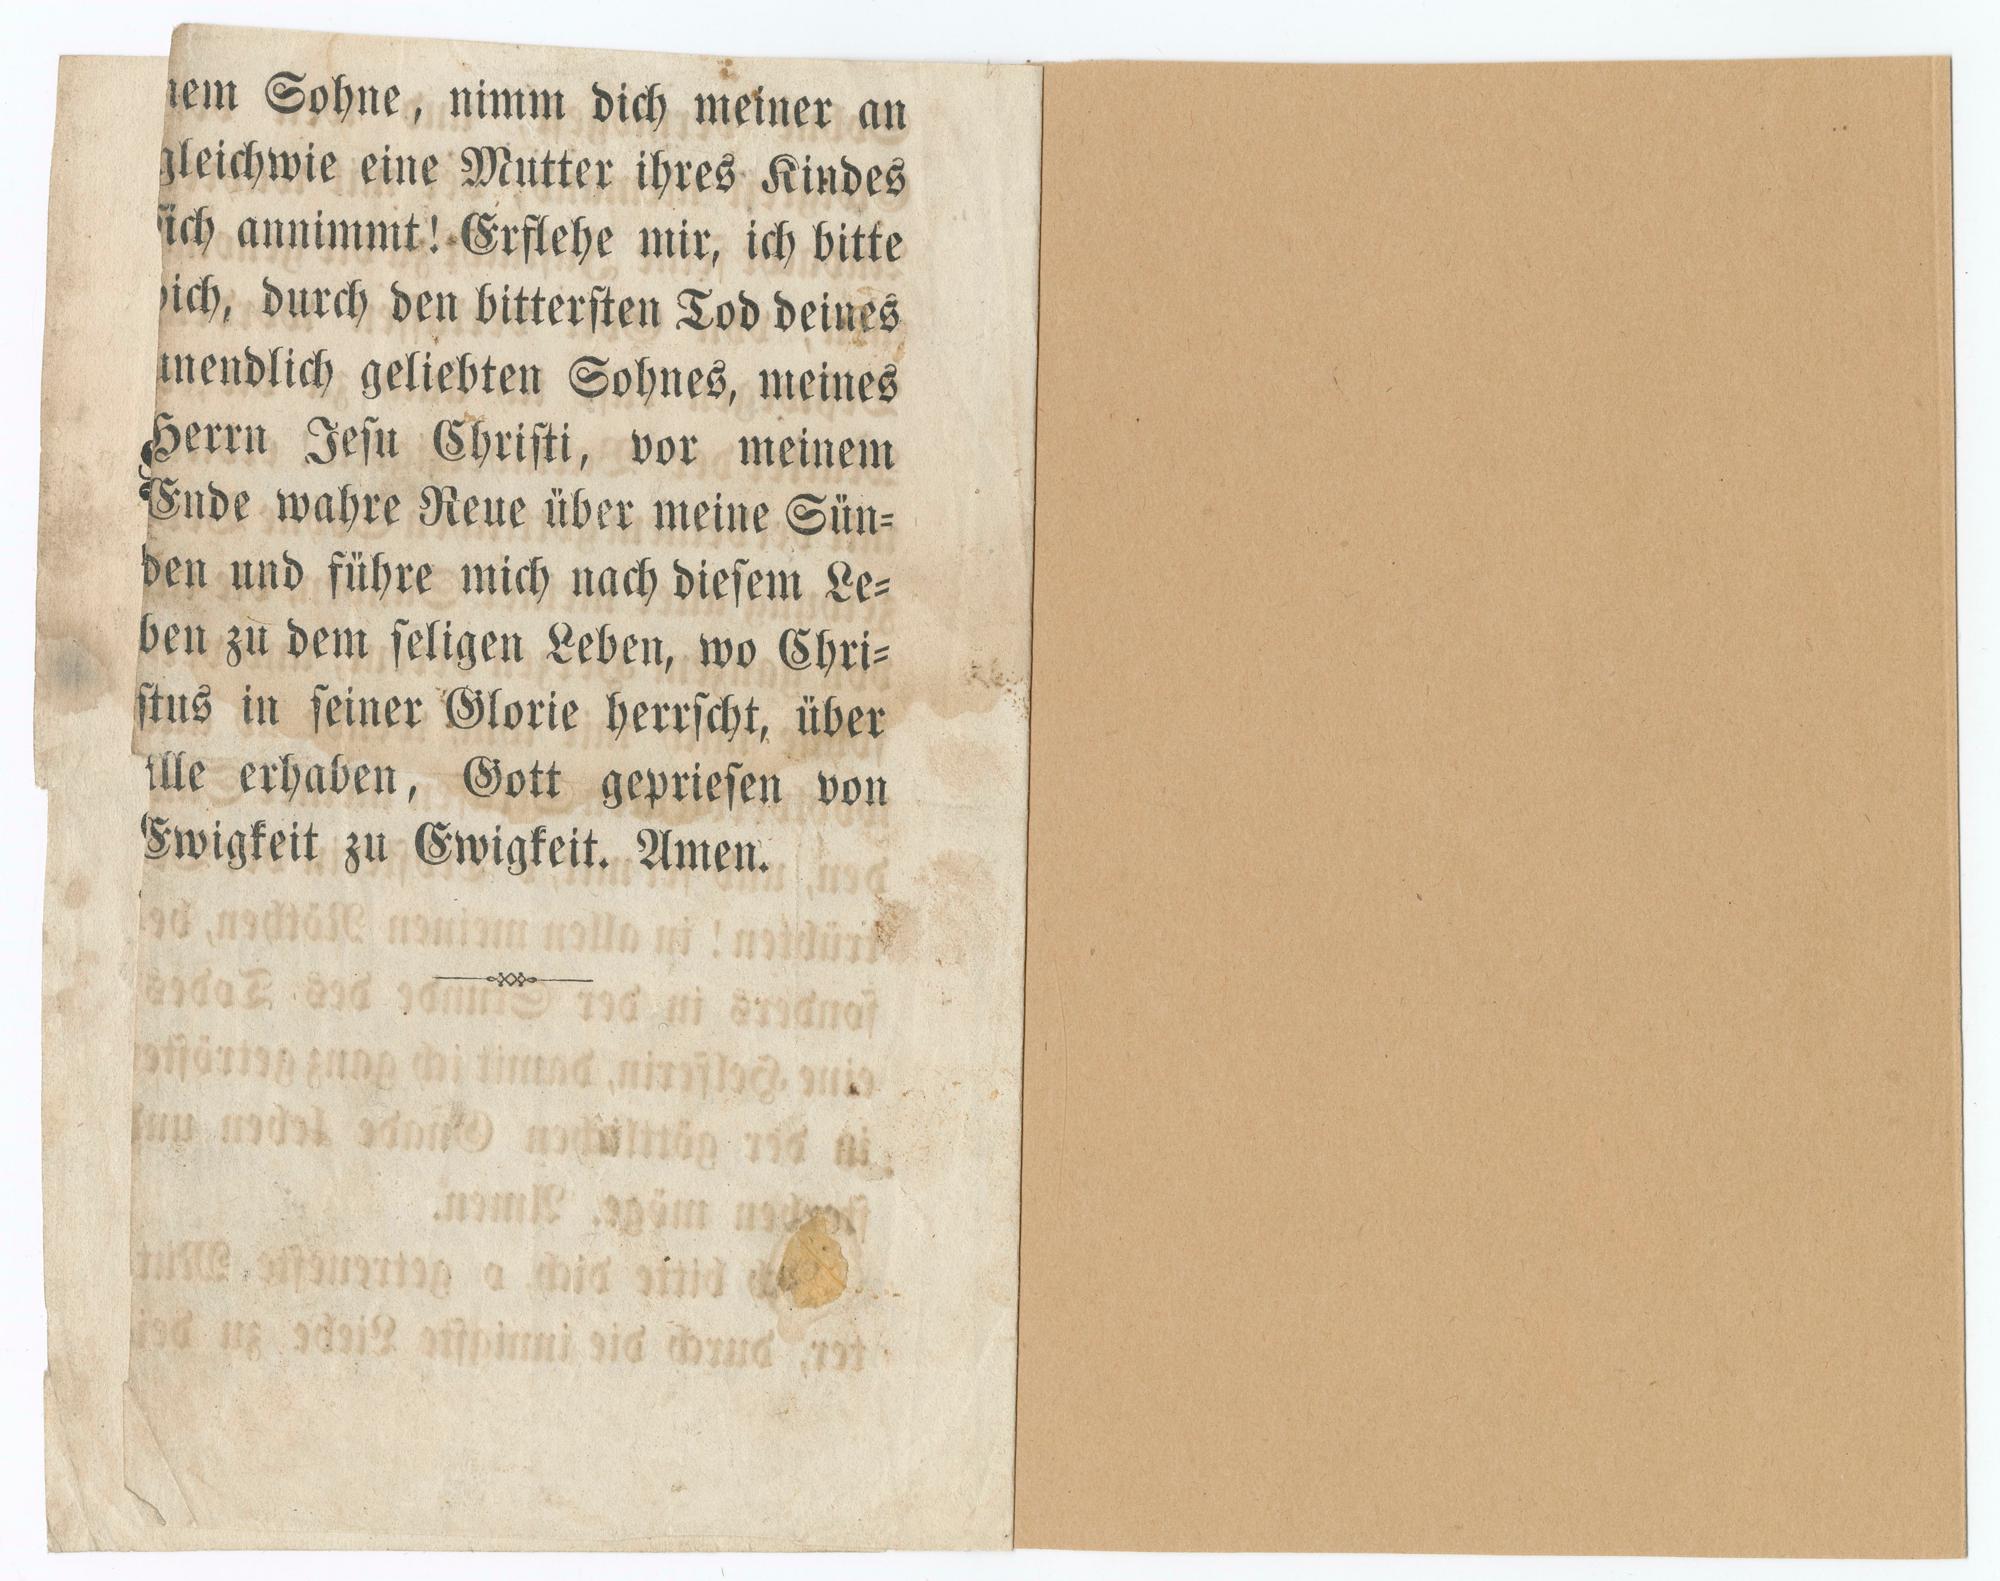 nem Sohne, nimm dich meiner an
gleichwie eine Mutter ihres Kindes
sich annimmt! Erflehe mir, ich bitte
dich, durch den bittersten Tod deines
unendlich geliebten Sohnes, meines
Herrn Jesu Christi, vor meinem
Ende wahre Reue über meine Sün-
den und führe mich nach diesem Le-
ben zu dem seligen Leben, wo Chri-
stus in seiner Glorie herrscht, über
Alle erhaben, Gott gepriesen von
Ewigkeit zu Ewigkeit. Amen.